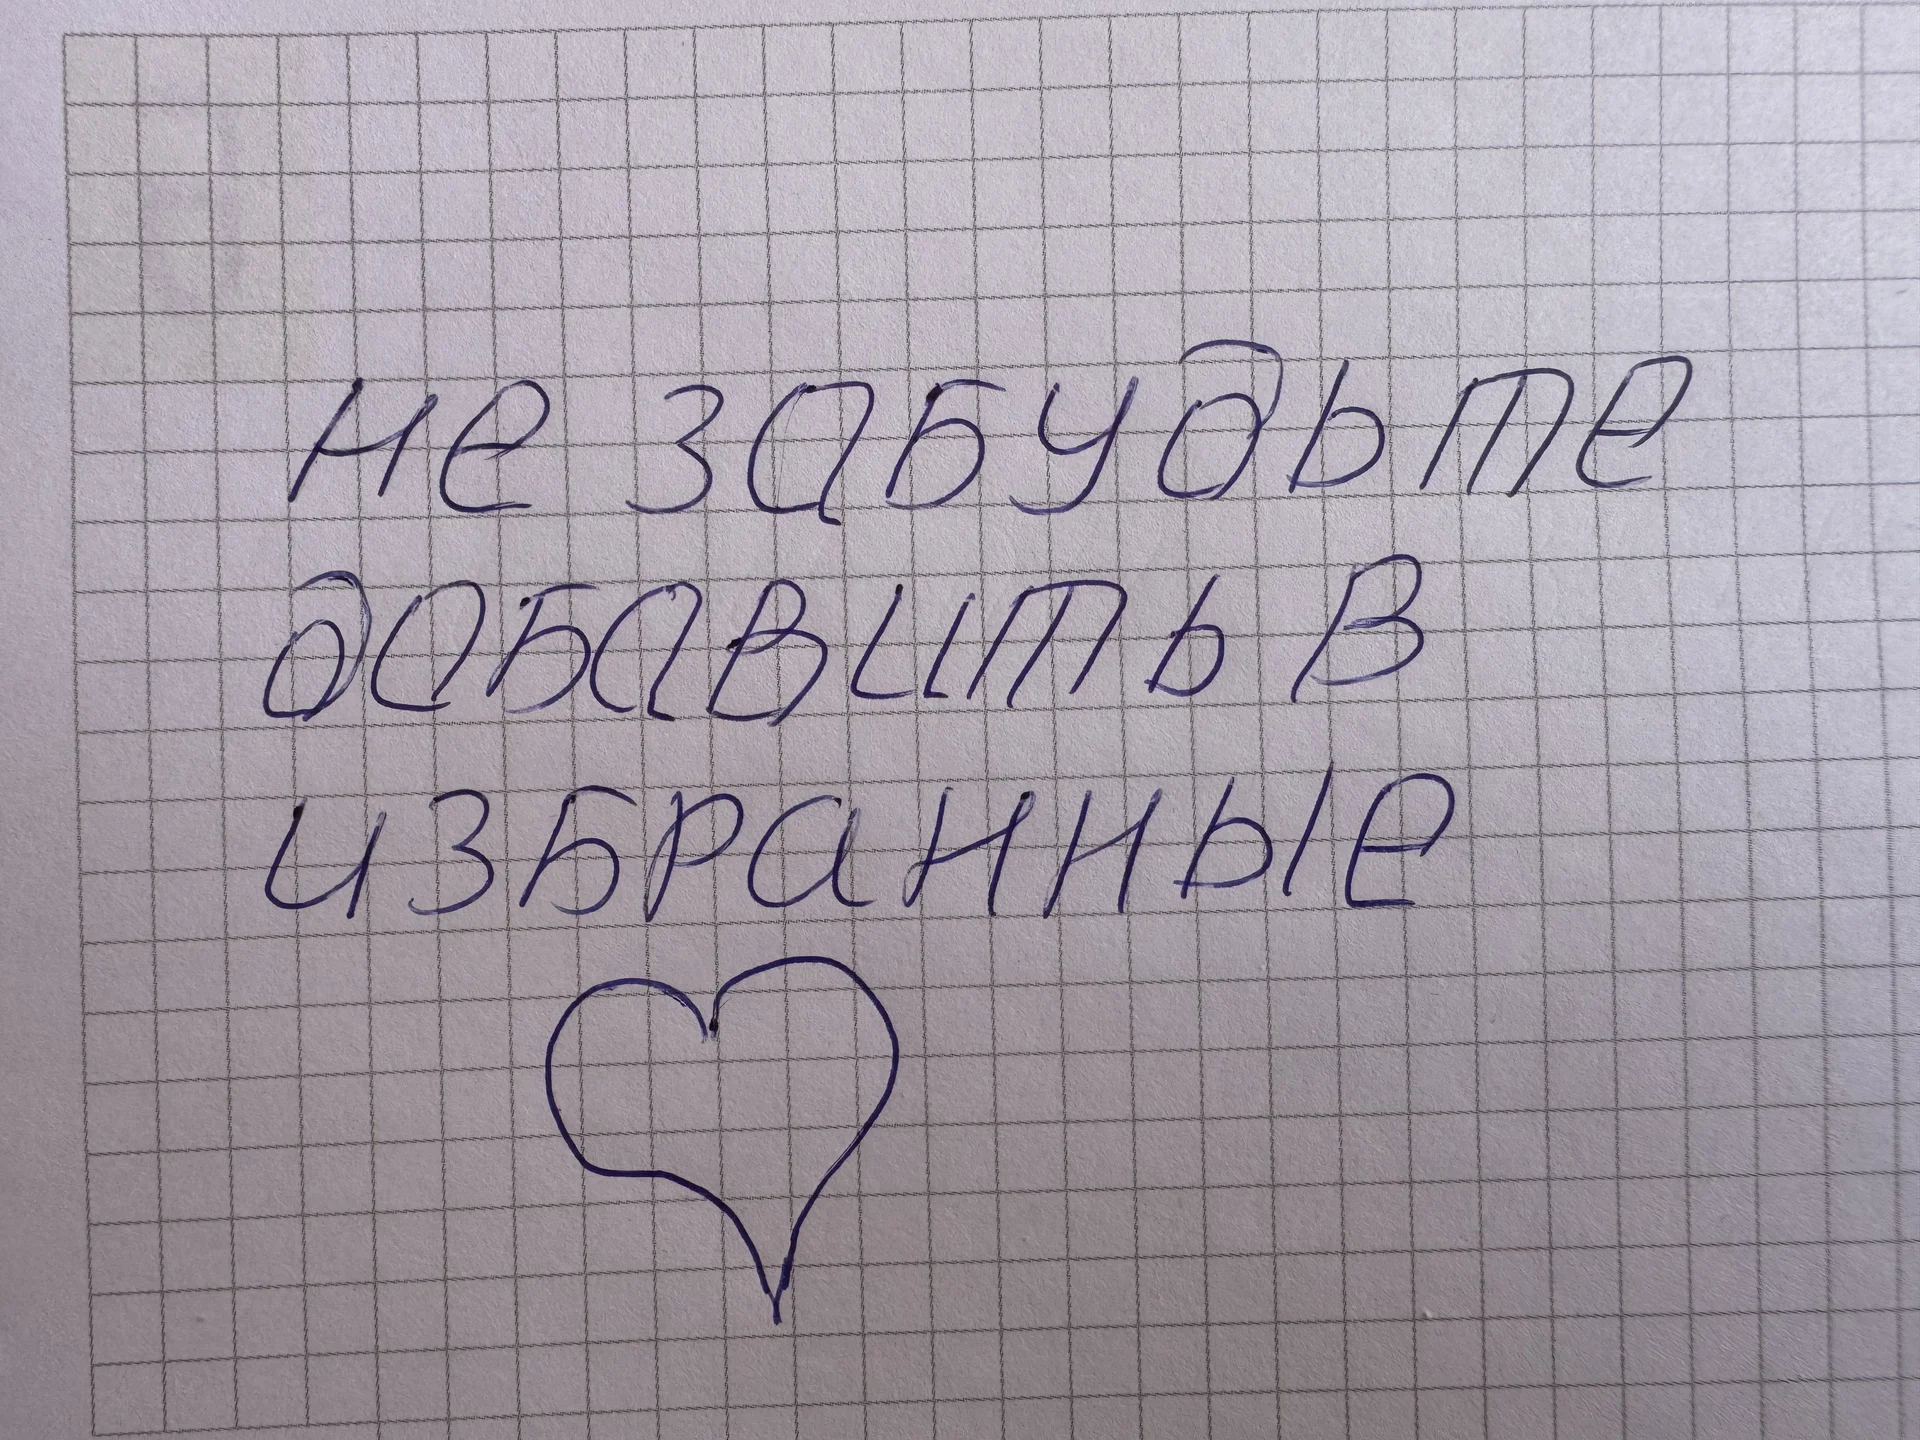 не забудьте
дабавить в
избранные